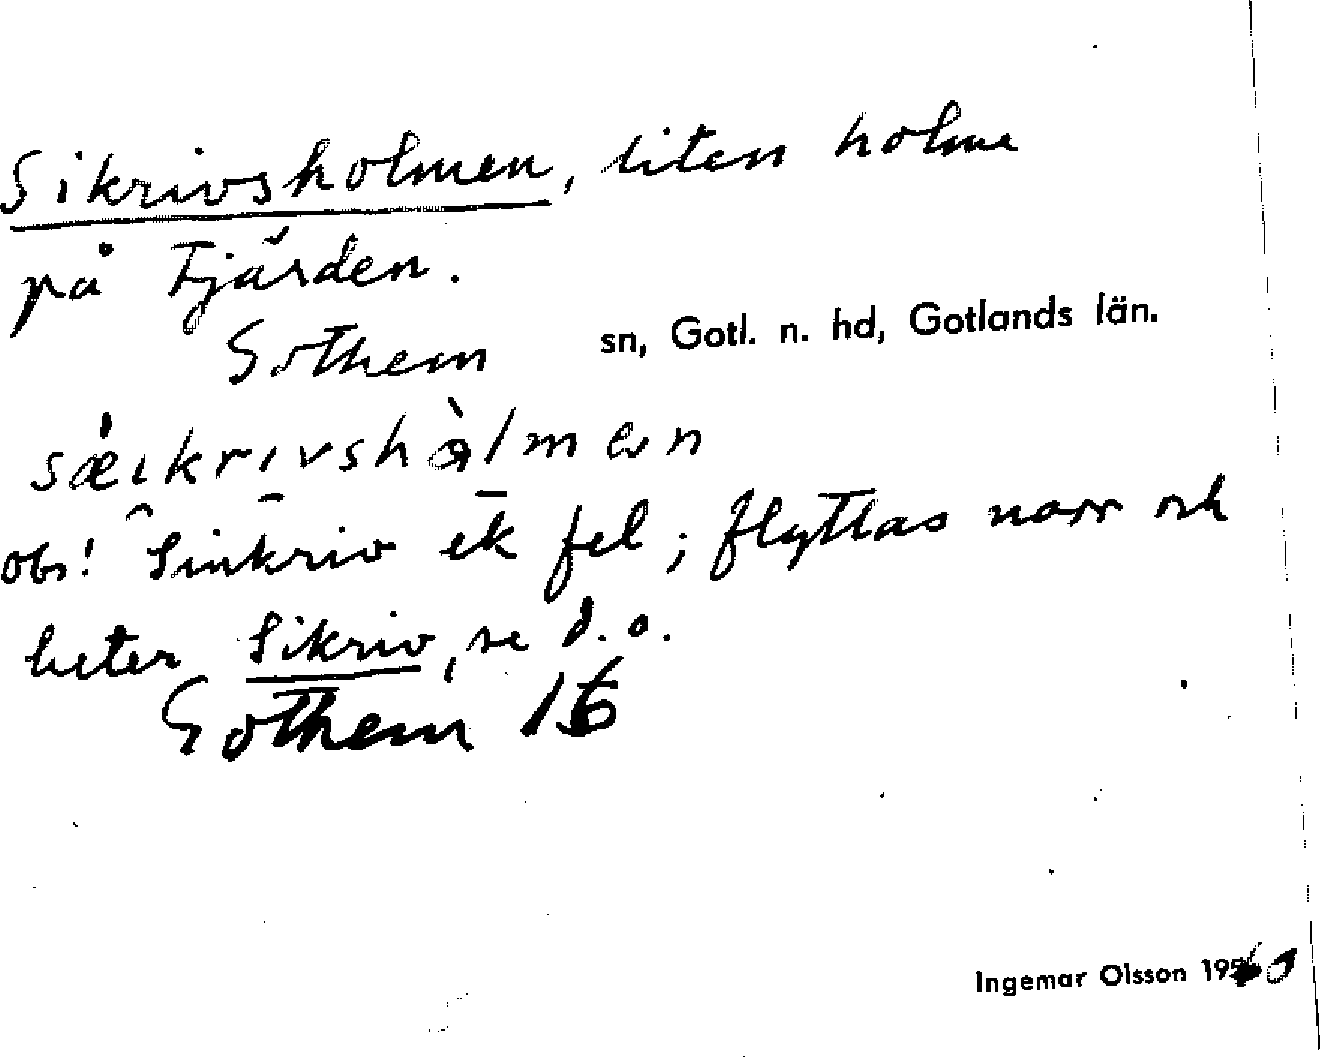 Sikrivsholmen, liten holme
på Fjärden.
Gothem sn, Gotl. n. hd, Gotlands län.
sæ̀ikrivshòlmen
obs! Sinkriv ek fel; flyttas norr och
heter Sikriv, se d.o.
Gothem 16
Ingemar Olsson 1960